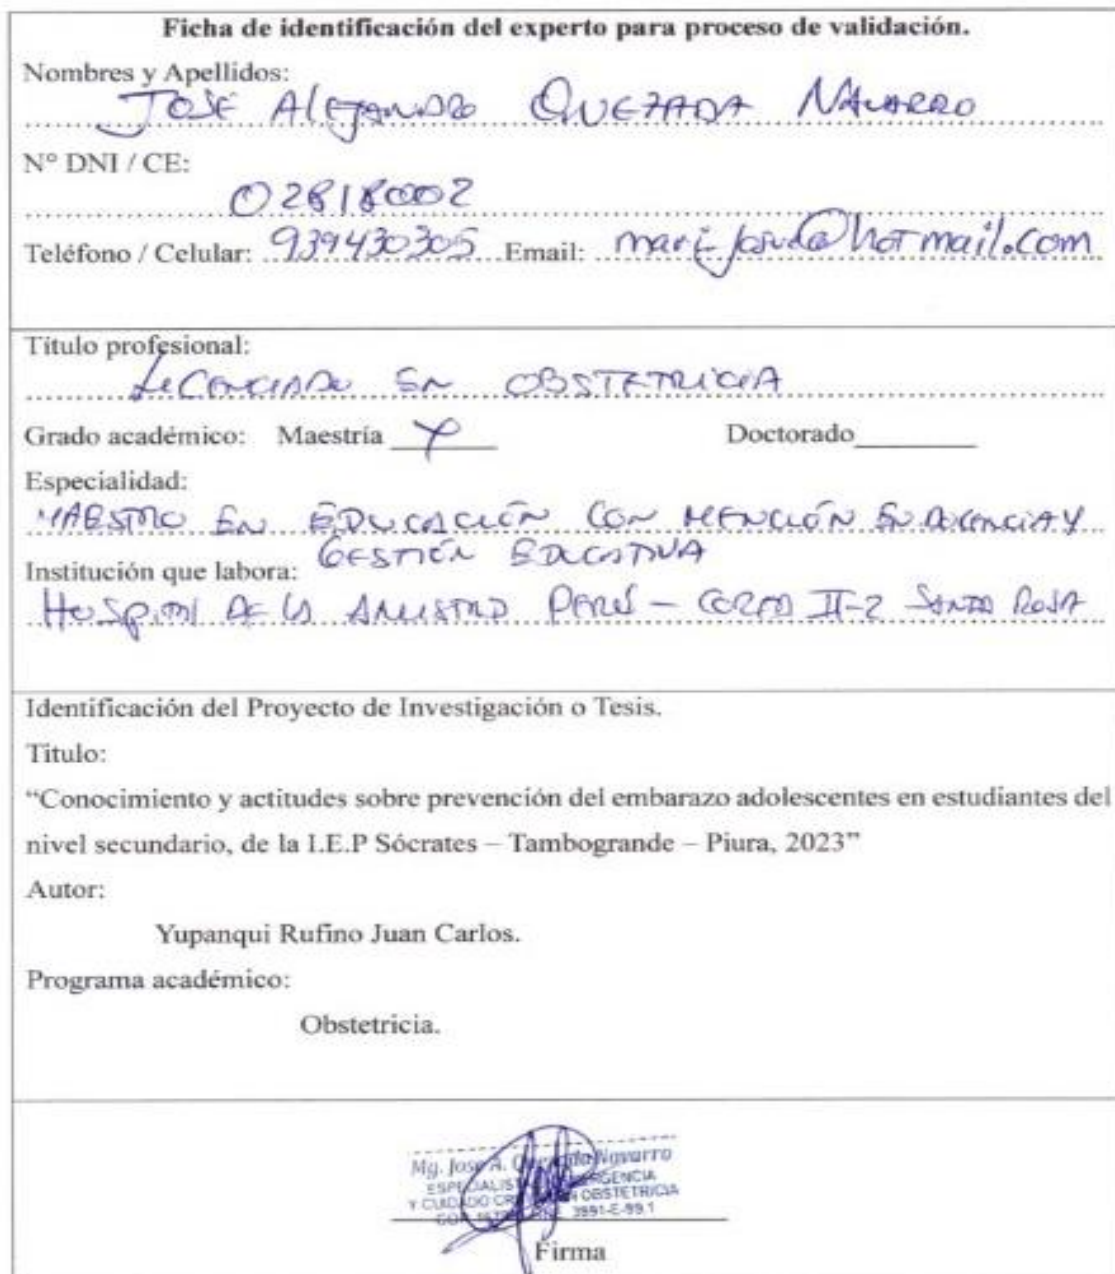 Ficha de identificación del experto para proceso de validación.
Nombres y Apellidos:
JOSÉ AlEJANDRO QUEZADA NAVARRO
N° DNI / CE:
02818002
Teléfono / Celular: 939430305 Email: @hotmail.com
Título profesional:
LICENCIADO EN OBSTETRICIA
Grado académico: Maestría X Doctorado
Especialidad:
MAESTRO EN EDUCACIÓN CON MENCIÓN EN DOCENCIA Y
GESTIÓN EDUCATIVA
Institución que labora:
HOSPITAl DE LA AMISTAD PERÚ - COREA II-2 SANTA ROSA
Identificación del Proyecto de Investigación o Tesis.
Titulo:
“Conocimiento y actitudes sobre prevención del embarazo adolescentes en estudiantes del
nivel secundario, de la I.E.P Sócrates – Tambogrande – Piura, 2023”
Autor:
Yupanqui Rufino Juan Carlos.
Programa académico:
Obstetricia.
Mg. Jose A. Navarro
OBSTETRICIA
3991-E-99.1
Firma